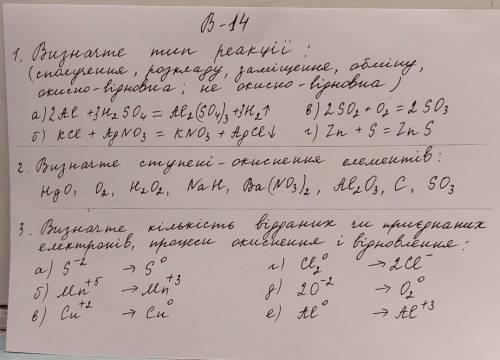 В-14
1. Визначте тип реакції:
(сполучення, розкладу, заміщення, обміну,
окисно-відновна; не окисно-відновна)
а) 2Al + 3H₂SO₄ = Al₂(SO₄)₃ + 3H₂↑ в) 2SO₂ + O₂ = 2SO₃
б) KCl + AgNO₃ = KNO₃ + AgCl↓ г) Zn + S = ZnS
2. Визначте ступені-окиснення елементів:
HgO, O₂, H₂O₂, NaH, Ba(NO₃)₂, Al₂O₃, C, SO₃
3. Визначте кількість відданих чи приєднаних
електронів, процеси окиснення і відновлення:
а) S⁻² → S⁰ г) Cl₂⁰ → 2Cl⁻
б) Mn⁺⁵ → Mn⁺³ д) 2O⁻² → O₂⁰
в) Cu⁺² → Cu⁰ е) Al⁰ → Al⁺³